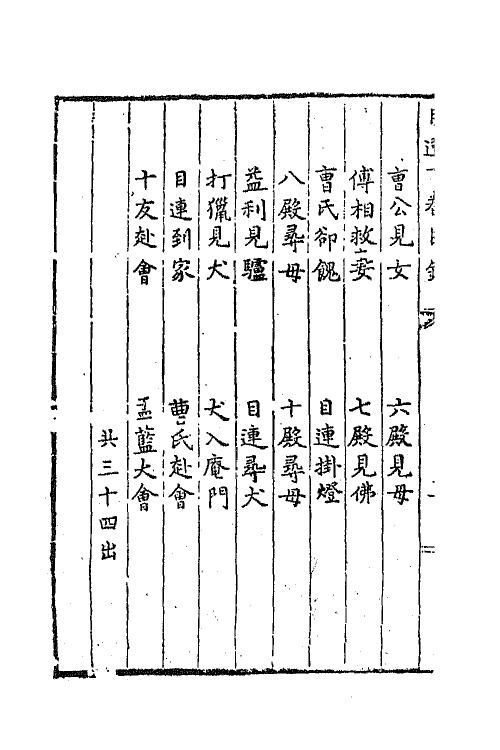 曹公見女　六殿見母
傅相救妻　七殿見佛
曹氏卻餽　目連掛燈
八殿尋母　十殿尋母
益利見驢　目連尋犬
打獵見犬　犬入庵門
目連到家　曹氏赴會
十友赴會　盂蘭大會
共三十四出